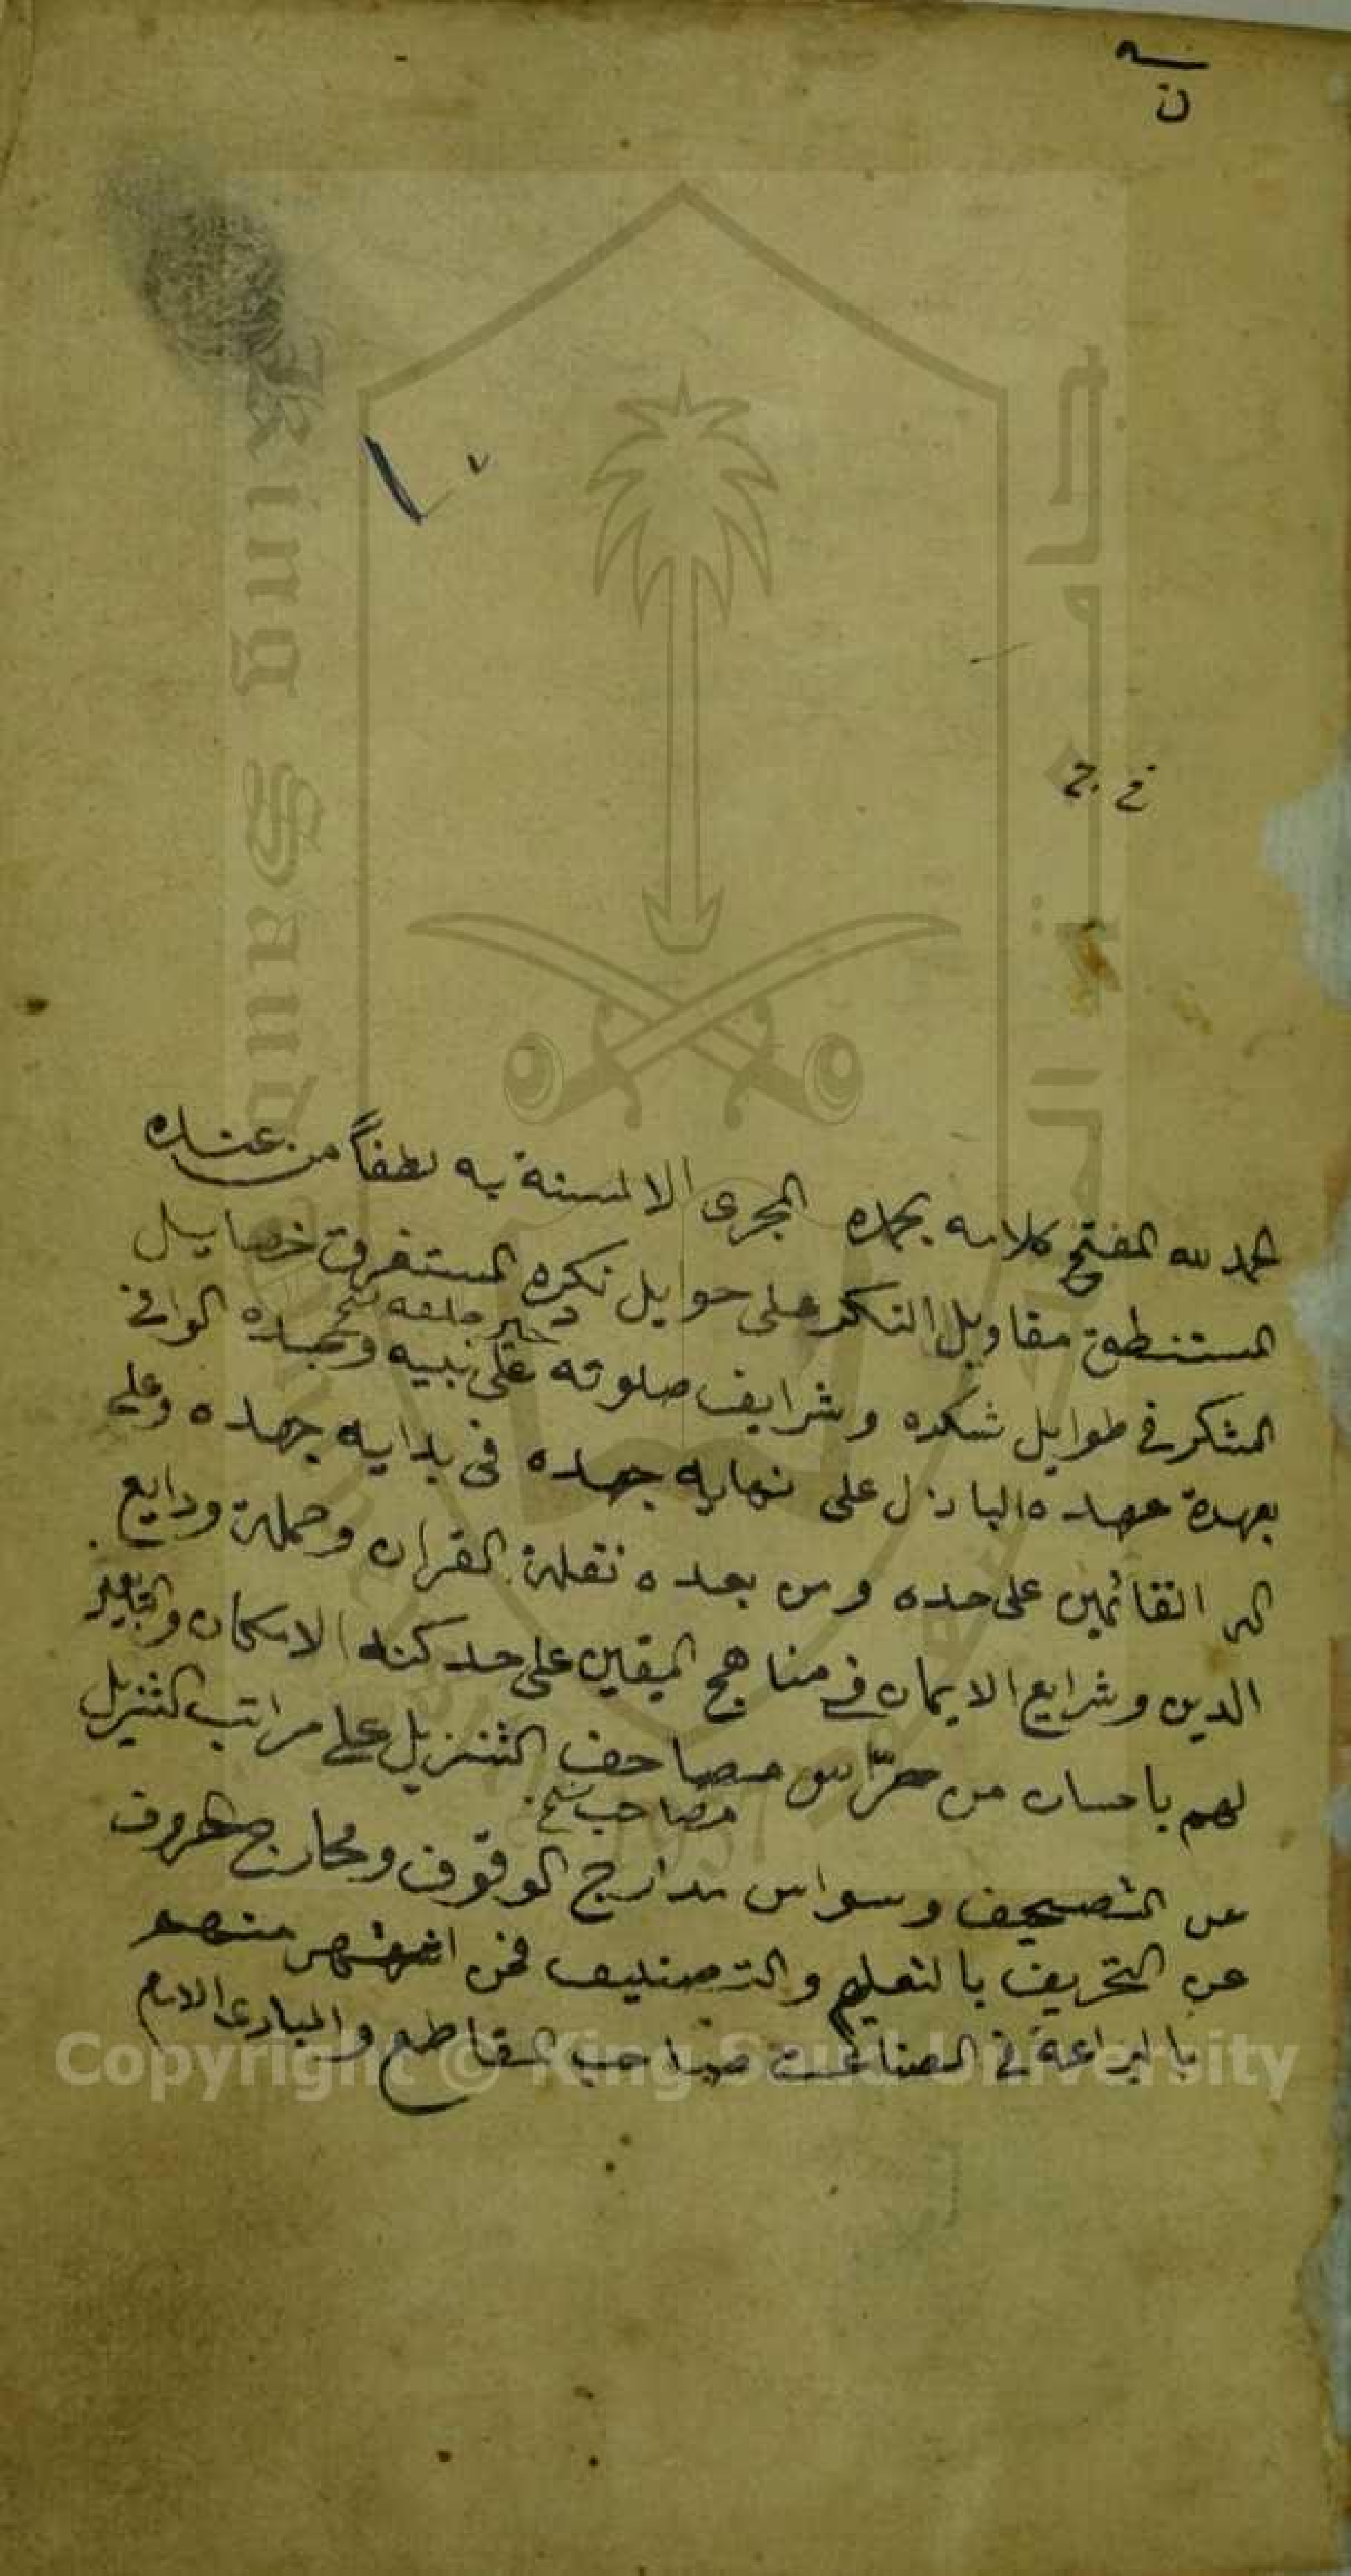 الحمد لله المفتتح كلامه بحمده المجرى الالسنة به لطفاً من عنده
المستنطق مقاويل التكر على حويل نكره المستغرق خصايل
خير خلقه نسخ
الشكر في طوايل شكده وشرايف صلوته على نبيه وعبده الوافى
بعهدة عهده الباذل على نهايه جهده فى بدايه جهده وعلى
اله القائمين على حده ومن بعده نقلة القران وحملة ودايع
الدين وشرايع الايمان فى مناهج اليقين على حد كنه الامكان والتابعين
لهم باحسان من حرّاس مصاحف التنزيل على مراتب التنزيل
مصاحب نسخ
عن التصحيف وسواس مدارج الوقوف ومخارج الحروف
عن التحريف بالتعليم والتصنيف فمن اشتهر منهم
بالبراعة فى الصناعة صاحب المقاطع والمبادى الامام
King Saud
جامعة الملك
1957
Copyright © King Saud University